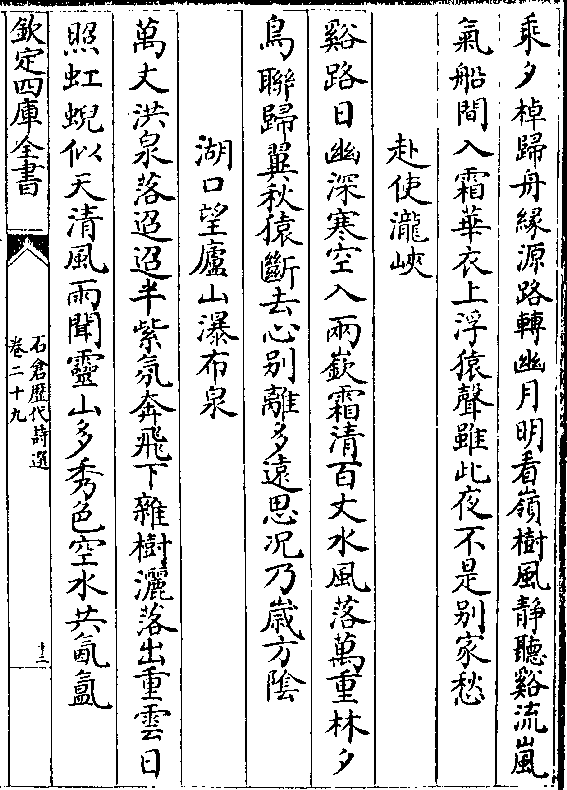 乘夕棹歸舟緣源路轉幽月明看嶺樹風静聽谿流嵐
氣船間入霜華衣上浮猿聲雖此夜不是别家愁
赴使瀧峽
谿路日幽深寒空入兩嶔霜清百丈水風落萬重林夕
鳥聯歸翼秋猿斷去心别離多遠思况乃歲方陰
湖口望廬山瀑布泉
萬丈洪泉落迢迢半紫氛奔飛下雜樹灑落出重雲日
照虹蜺似天清風雨聞靈山多秀色空水共氤氲
欽定四庫全書
石倉歷代詩選
卷二十九
十三